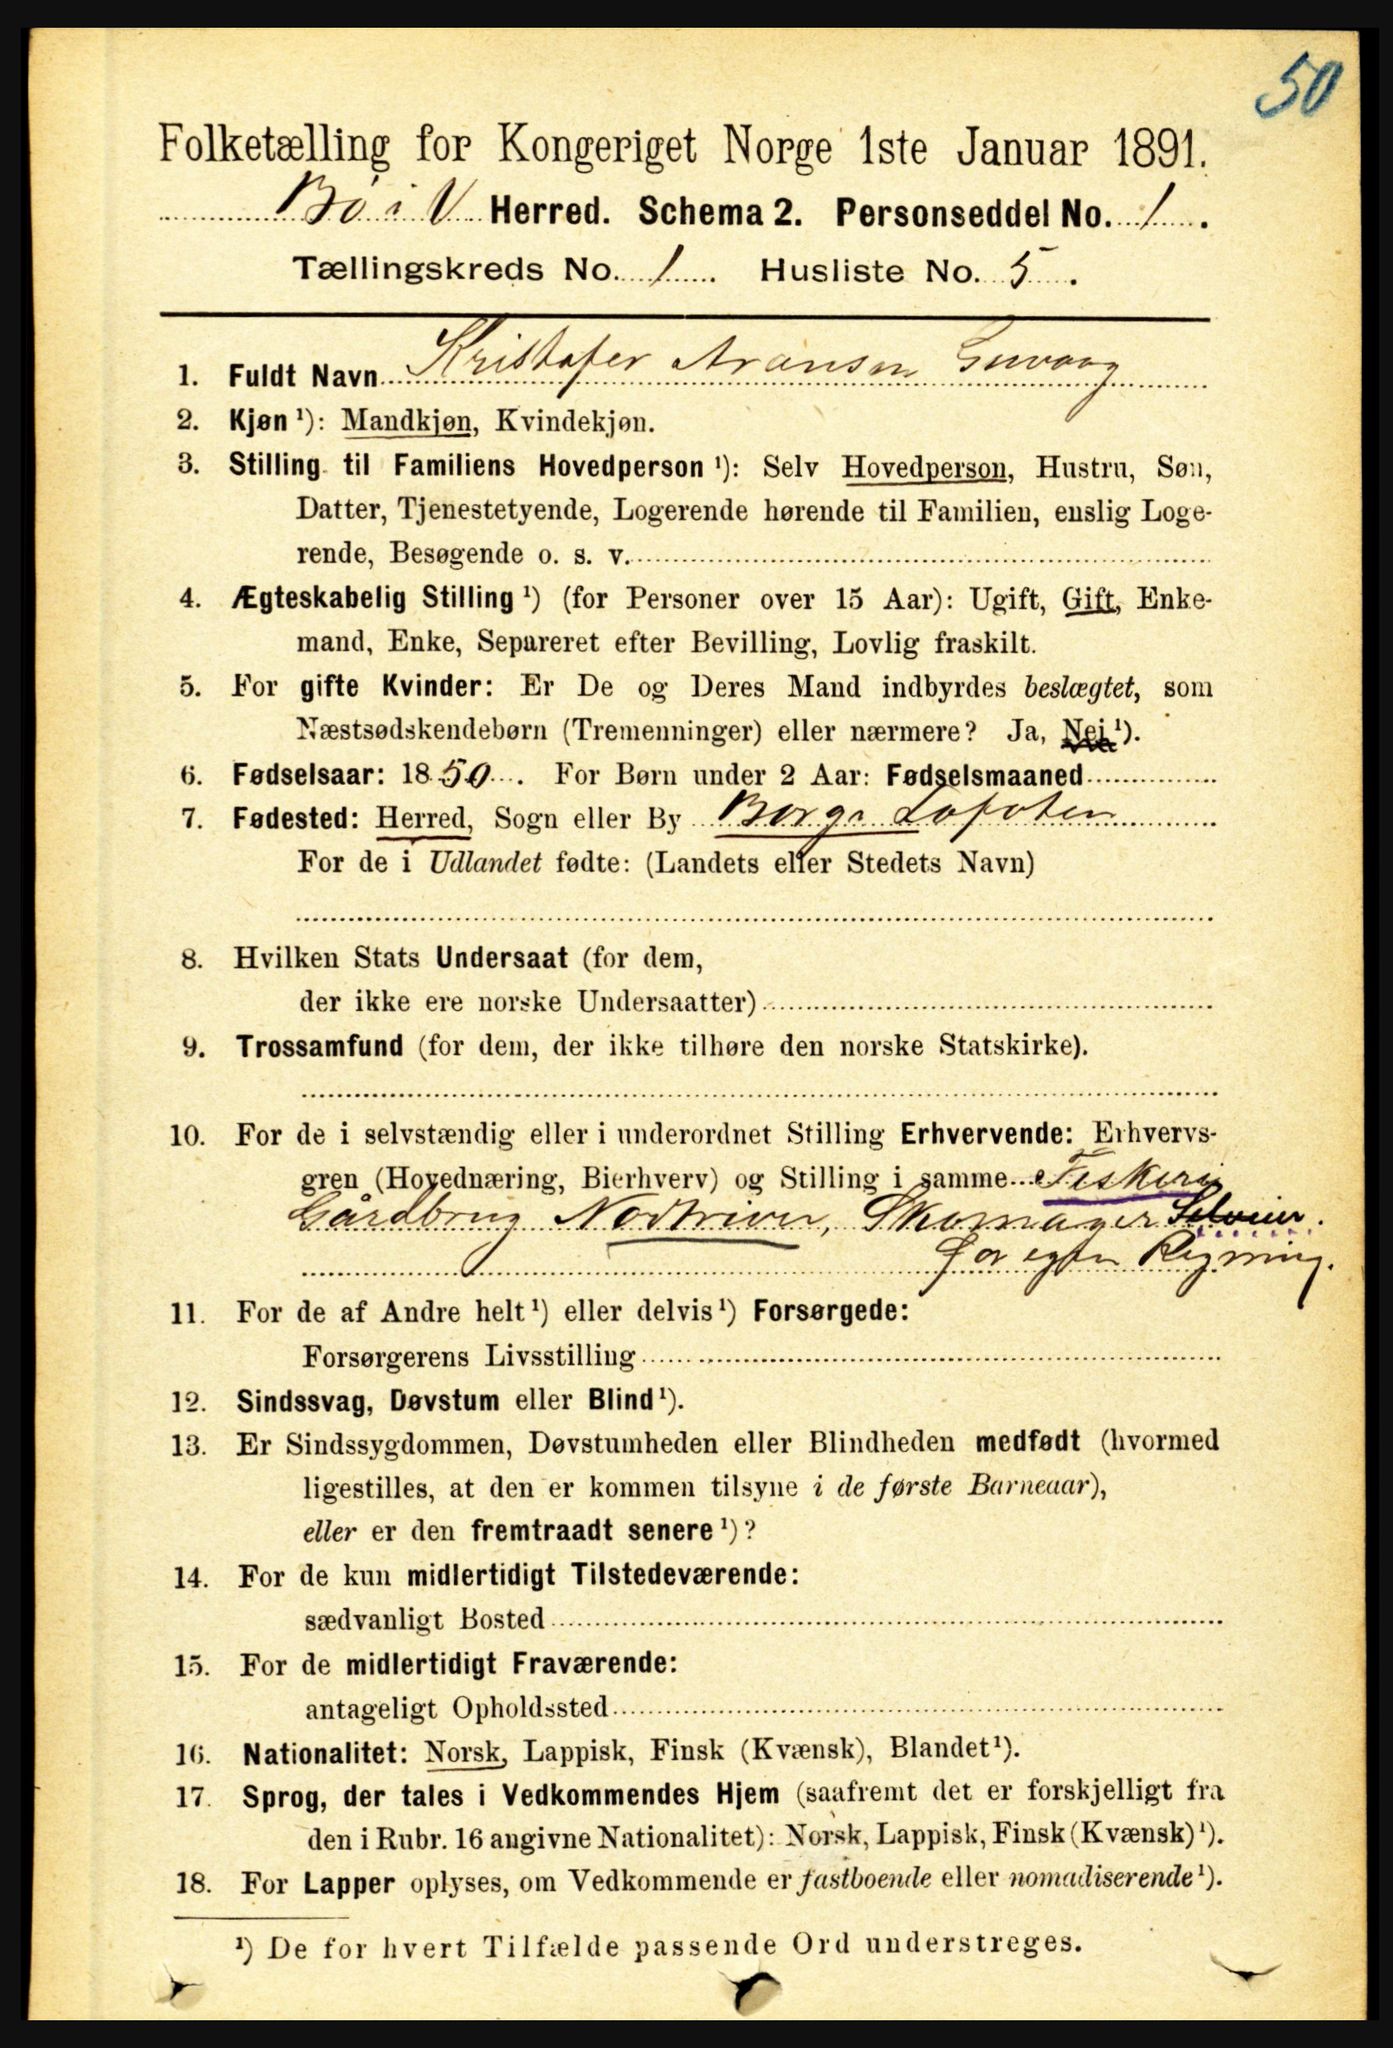 50
Folketælling for Kongeriget Norge 1ste Januar 1891.
Bø i V Herred. Schema 2. Personseddel No. 1.
Tællingskreds No. 1. Husliste No. 5.
1. Fuldt Navn Kristofer Aronsen Guvaag
2. Kjøn ¹): Mandkjøn, Kvindekjøn.
3. Stilling til Familiens Hovedperson ¹): Selv Hovedperson, Hustru, Søn,
Datter, Tjenestetyende, Logerende hørende til Familien, enslig Loge-
rende, Besøgende o. s. v.
4. Ægteskabelig Stilling ¹) (for Personer over 15 Aar): Ugift, Gift, Enke-
mand, Enke, Separeret efter Bevilling, Lovlig fraskilt.
5. For gifte Kvinder: Er De og Deres Mand indbyrdes beslægtet, som
Næstsødskendebørn (Tremenninger) eller nærmere? Ja, Nei ¹).
6. Fødselsaar: 1850. For Børn under 2 Aar: Fødselsmaaned
7. Fødested: Herred, Sogn eller By Borge Lofoten
For de i Udlandet fødte: (Landets eller Stedets Navn)
8. Hvilken Stats Undersaat (for dem,
der ikke ere norske Undersaatter)
9. Trossamfund (for dem, der ikke tilhøre den norske Statskirke).
10. For de i selvstændig eller i underordnet Stilling Erhvervende: Erhvervs-
gren (Hovednæring, Bierhverv) og Stilling i samme Fiskeri
Gårdbrug Skomager Selveier.
for egen Regning.
11. For de af Andre helt ¹) eller delvis ¹) Forsørgede:
Forsørgerens Livsstilling
12. Sindssvag, Døvstum eller Blind ¹).
13. Er Sindssygdommen, Døvstumheden eller Blindheden medfødt (hvormed
ligestilles, at den er kommen tilsyne i de første Barneaar),
eller er den fremtraadt senere ¹)?
14. For de kun midlertidigt Tilstedeværende:
sædvanligt Bosted
15. For de midlertidigt Fraværende:
antageligt Opholdssted
16. Nationalitet: Norsk, Lappisk, Finsk (Kvænsk), Blandet ¹).
17. Sprog, der tales i Vedkommendes Hjem (saafremt det er forskjelligt fra
den i Rubr. 16 angivne Nationalitet): Norsk, Lappisk, Finsk (Kvænsk) ¹).
18. For Lapper oplyses, om Vedkommende er fastboende eller nomadiserende ¹).
¹) De for hvert Tilfælde passende Ord understreges.